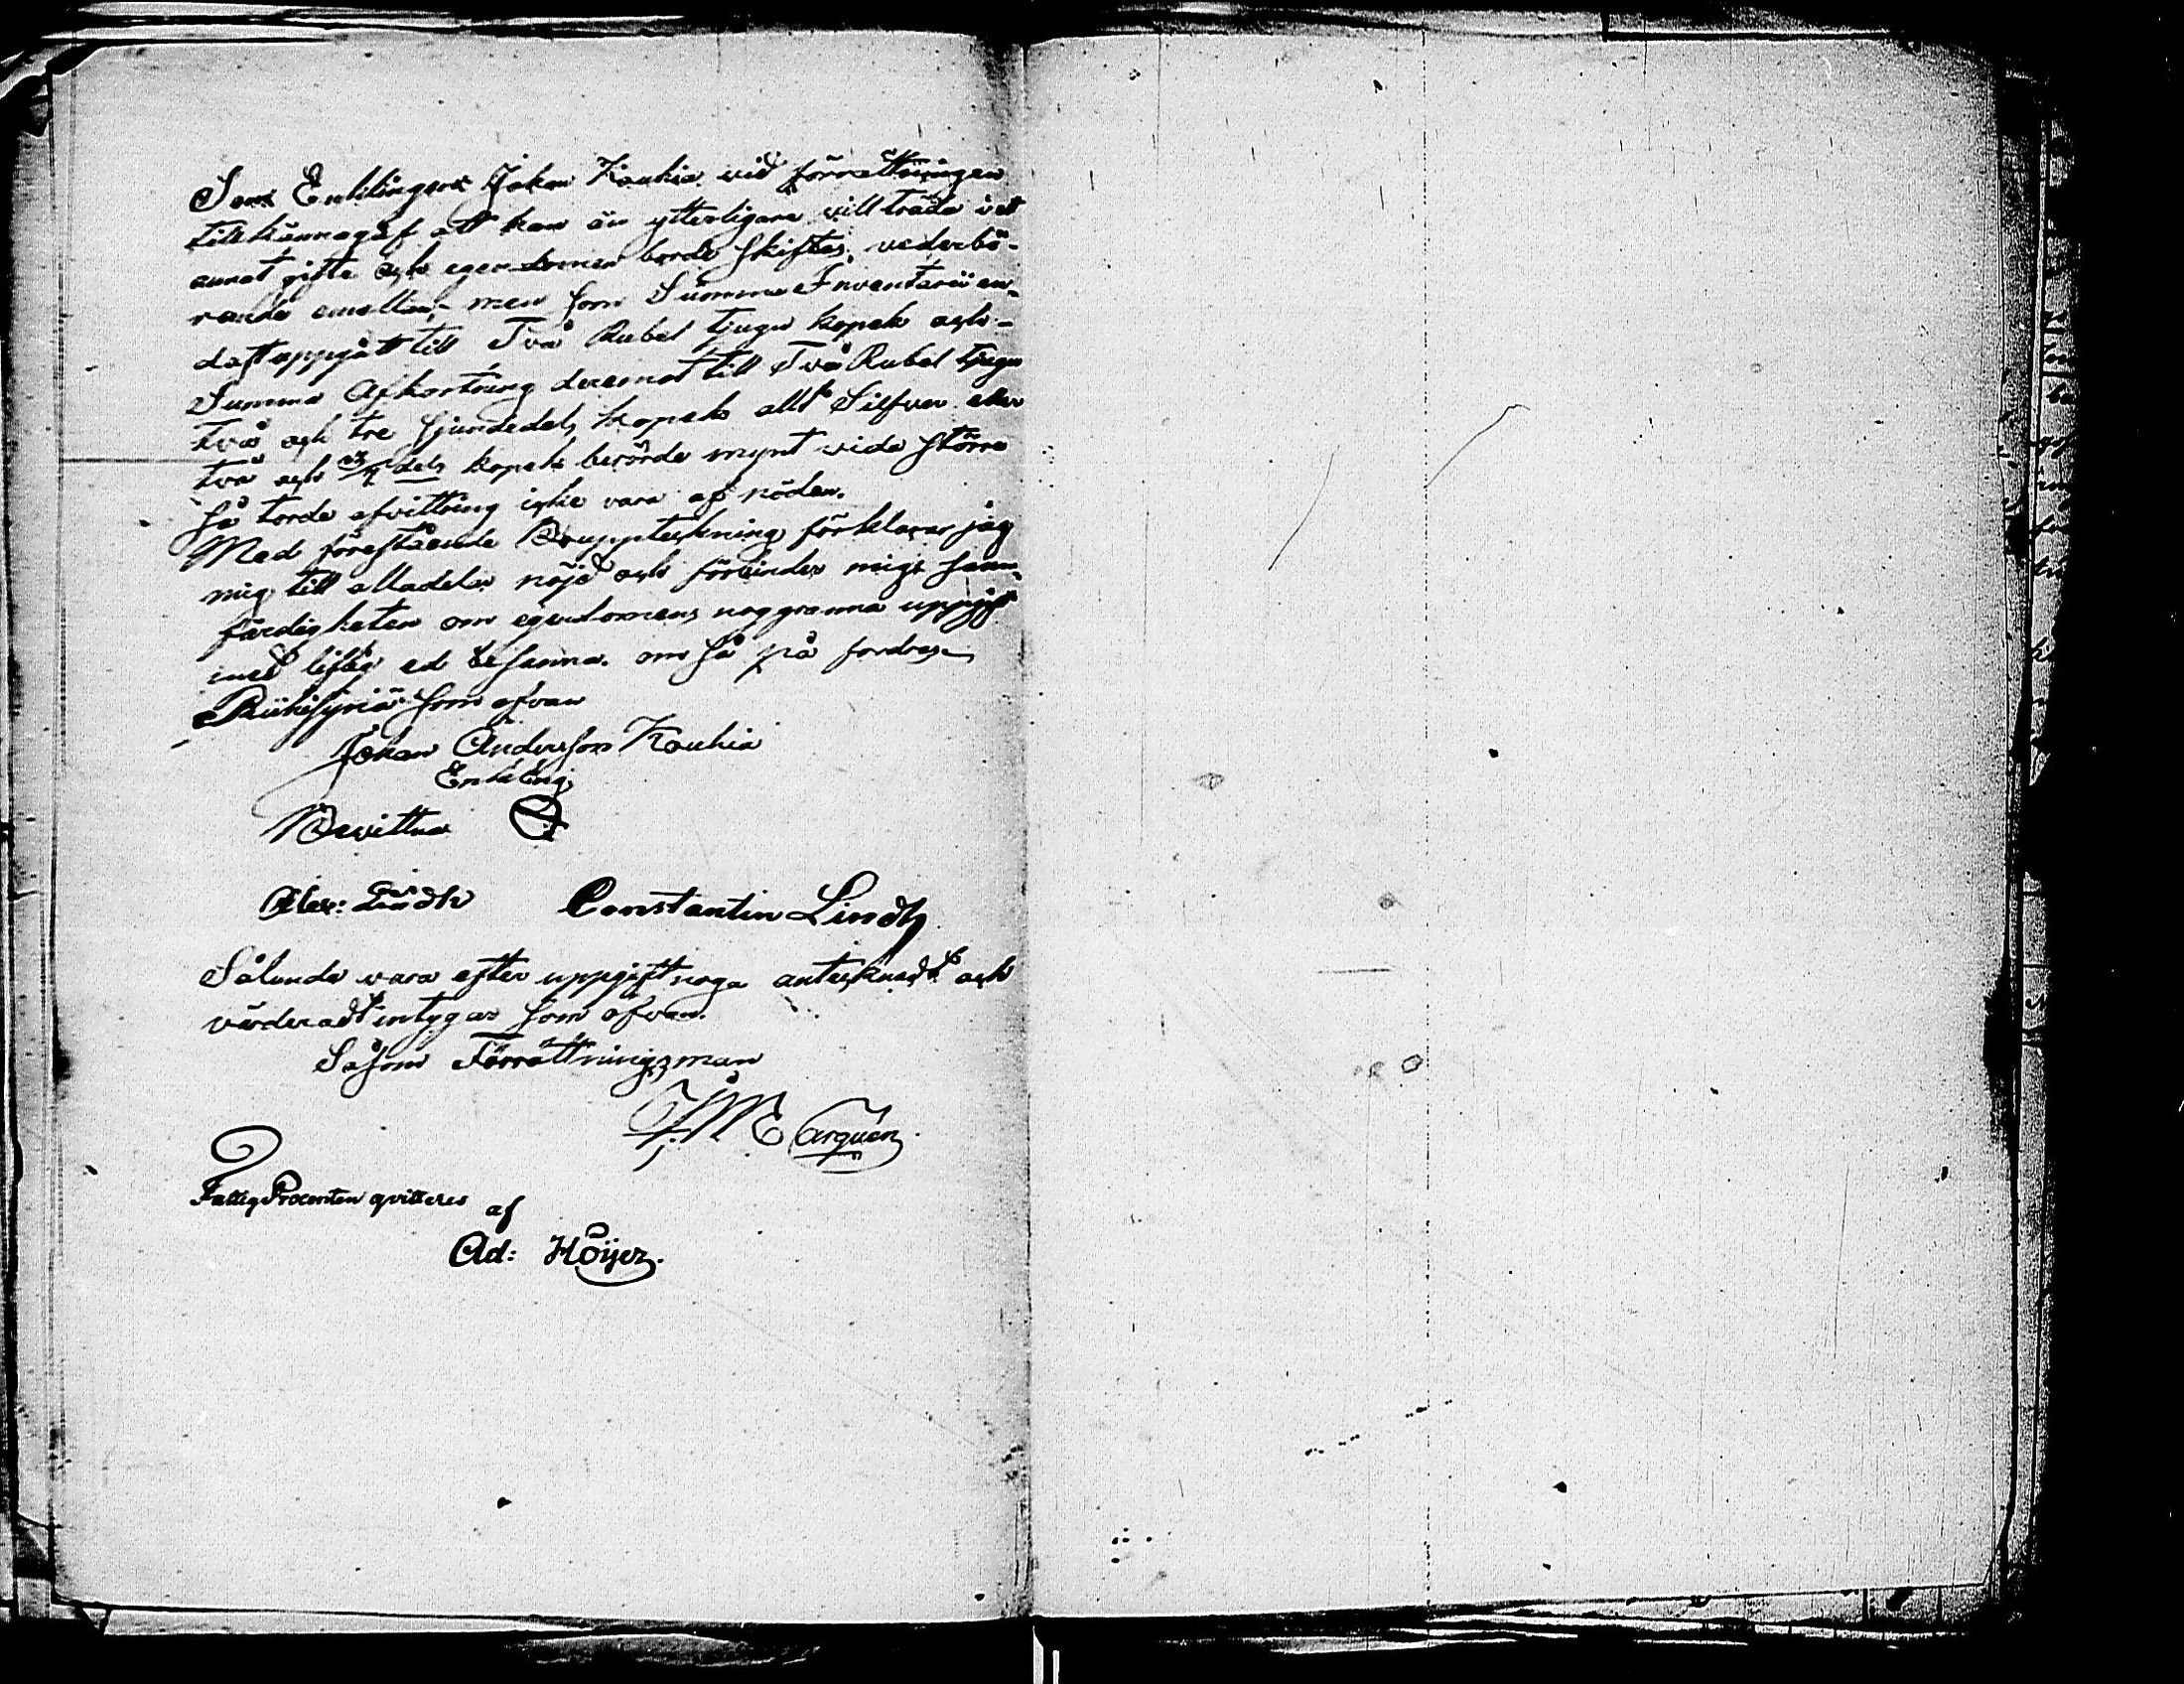 Som Enklingen Johan Kauhia vid förrättningen
tillkännagaf att han än ytterligare vill träda i ett
annat gifte och egendomen borde skiftas vederbö-
rande emellan, men som Summa Inventarii en-
dast uppgått till Två Rubel tjugu kopek och
Summa Afkortning deremot till Två Rubel tjugu
två och tre sjundedels kopek allt Silfver eller
två och 3/7 dels kopek berörde mynt vida större
så torde afvittring icke vara af nöden.
Med förestående Bouppteckning förklarar jag
mig till alla delar nöjd och förbinder mig sann-
färdigheten om egendomens noggranna uppgift
med liflig ed besanna om så på fordras
som ofvan
Johan Andersson Kauhia
Enkling
Bevittna
Alex: Lindh Constantin Lindh
Sålunda vara efter uppgift noga antecknadt och
värderadt intygar som ofvan.
Såsom Förrättningsman
Fattig Procenten qvitteres af
Ad: Höijer.